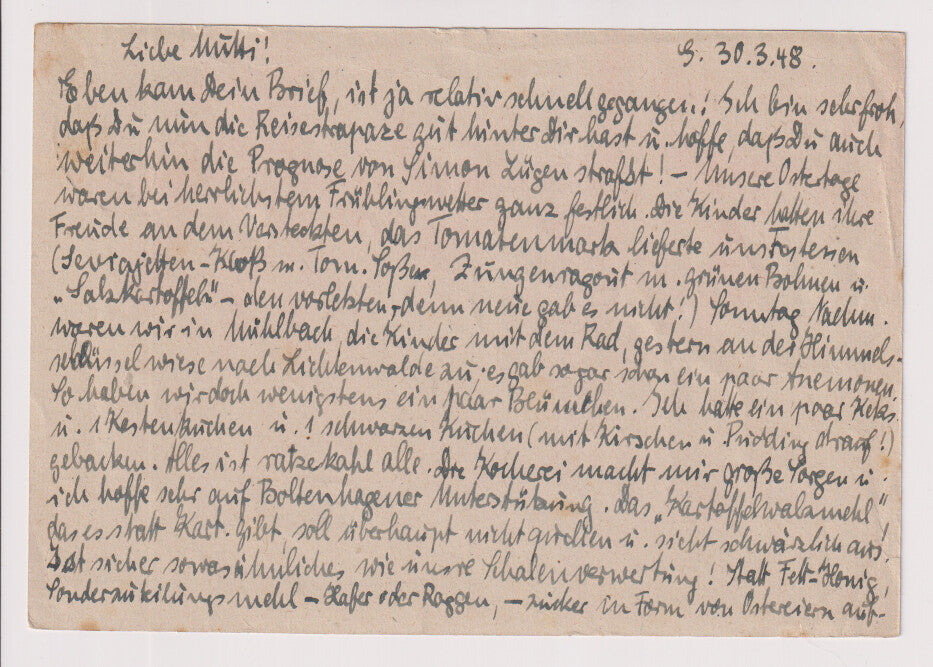 Liebe Mutti! G. 30.3.48.
Eben kam Dein Brief, ist ja relativ schnell gegangen.! Ich bin sehr froh,
daß Du nun die Reisestrapaze gut hinter Dir hast u. hoffe, daß Du auch
weiterhin die Prognose von Simon Lügen strafst! – Unsere Ostertage
waren bei herrlichstem Frühlingswetter ganz festlich. Die Kinder hatten ihre
Freude an dem Versteckten, das Tomatenmark lieferte uns
Kloß m. Tom. Soßen, Zungenragout m. grünen Bohnen u.
„Salzkartoffeln" – den vorletzten, denn neue gab es nicht!) Sonntag Nachm.
waren wir in Mühlbach, die Kinder mit dem Rad, gestern an der Himmels-
schlüsselwiese nach Lichtenwalde zu, es gab sogar schon ein paar Anemonen.
So haben wir doch wenigstens ein paar Blümchen. Ich hatte ein paar Keks
u. 1 Kastenkuchen u. 1 schwarzen Kuchen (mit Kirschen u. Pudding drauf!)
gebacken. Alles ist ratzekahl alle. Die Kocherei macht mir große Sorgen u.
ich hoffe sehr auf Boltenhagener Unterstützung. Das „Kartoffelwalzmehl"
das es statt Kart. gibt soll überhaupt nicht quellen u. sieht schwärzlich aus!
Ist sicher sowas ähnliches wie unsre Schalenverwertung! Statt Fett – Honig,
Sonderzuteilungsmehl – Hafer oder Roggen, – zucker in Form von Ostereiern auf-